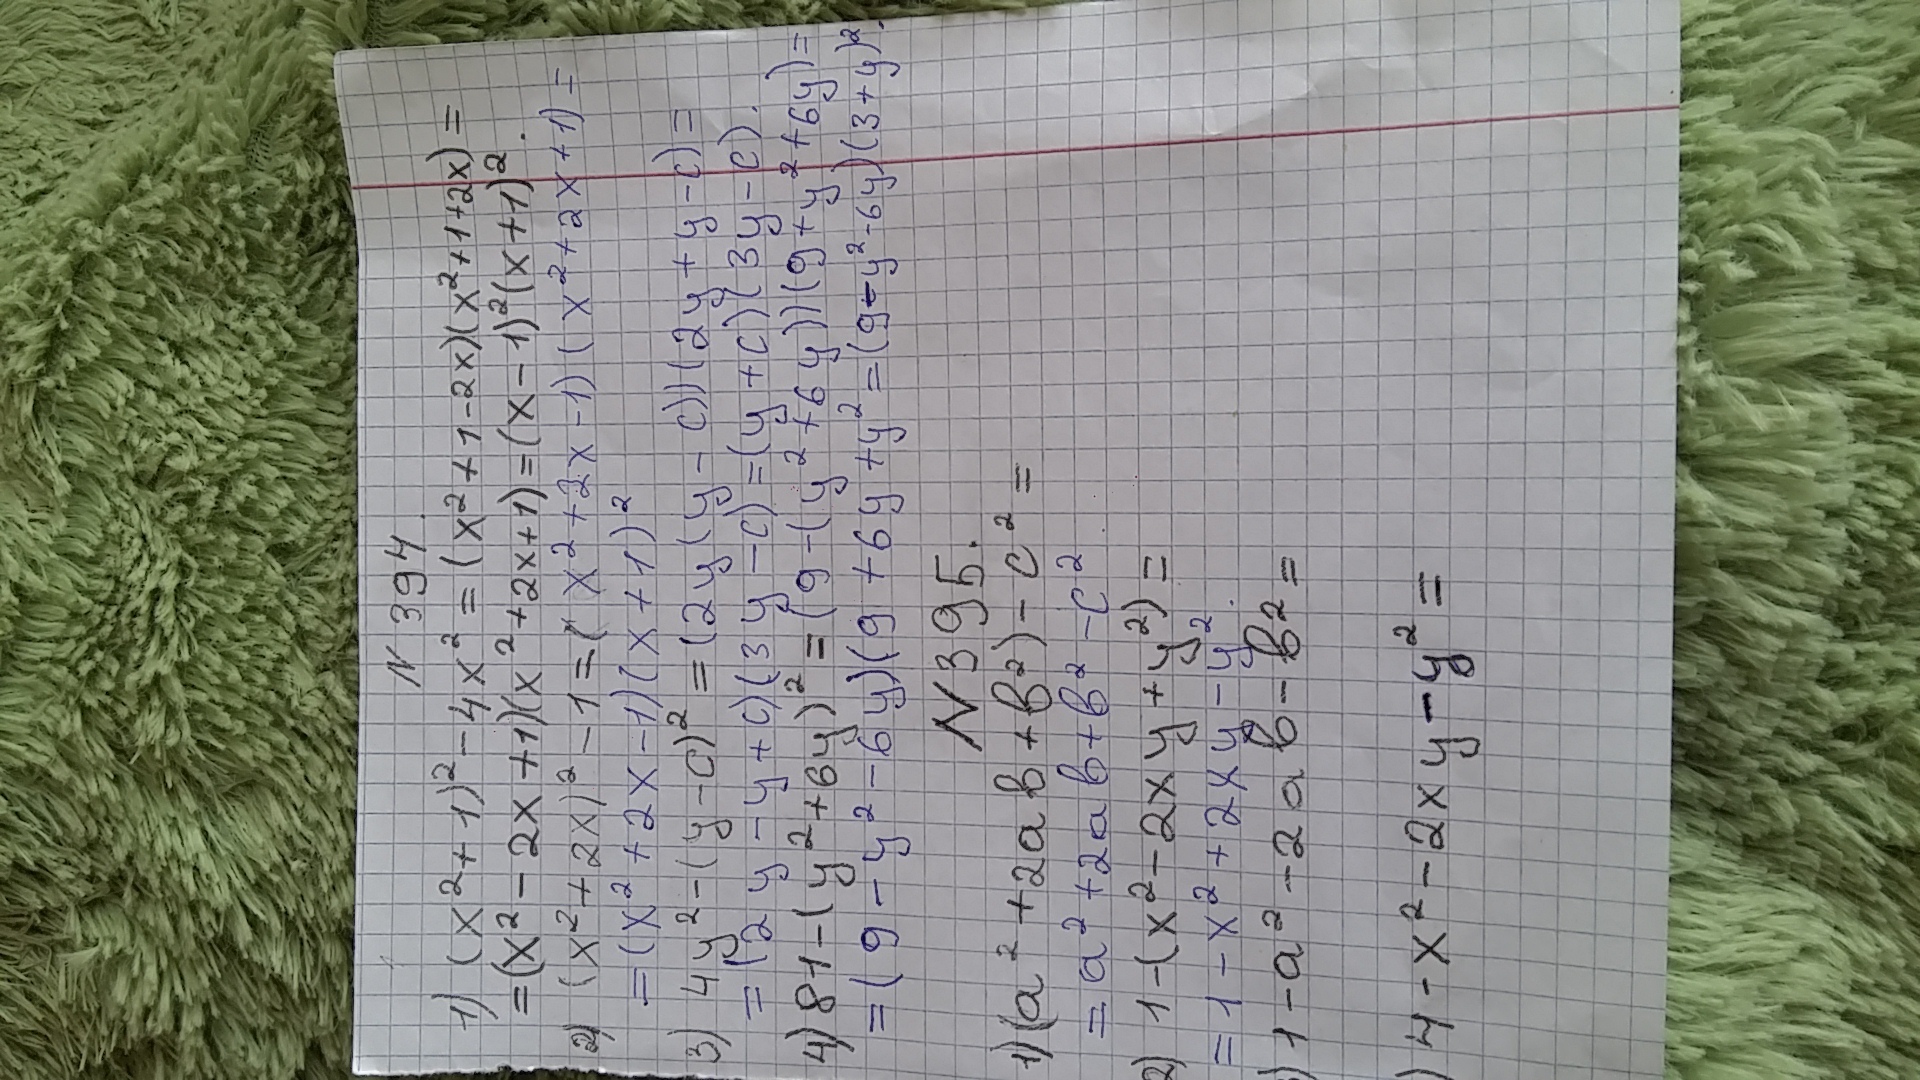 N 394.
1) (x²+1)²-4x²=(x²+1-2x)(x²+1+2x)=
=(x²-2x+1)(x²+2x+1)=(x-1)²(x+1)².
2) (x²+2x)²-1=(x²+2x-1)(x²+2x+1)=
=(x²+2x-1)(x+1)²
3) 4y²-(y-c)²=(2y(y-c))(2y+y-c)=
=(2y-y+c)(3y-c)=(y+c)(3y-c).
4) 81-(y²+6y)²=(9-(y²+6y))(9+y²+6y)=
=(9-y²-6y)(9+6y+y²=(9-y²-6y)(3+y)².
N 395.
1) (a²+2ab+b²)-c²=
=a²+2ab+b²-c²
2) 1-(x²-2xy+y²)=
=1-x²+2xy-y².
) 1-a²-2ab-b²=
) 4-x²-2xy-y²=